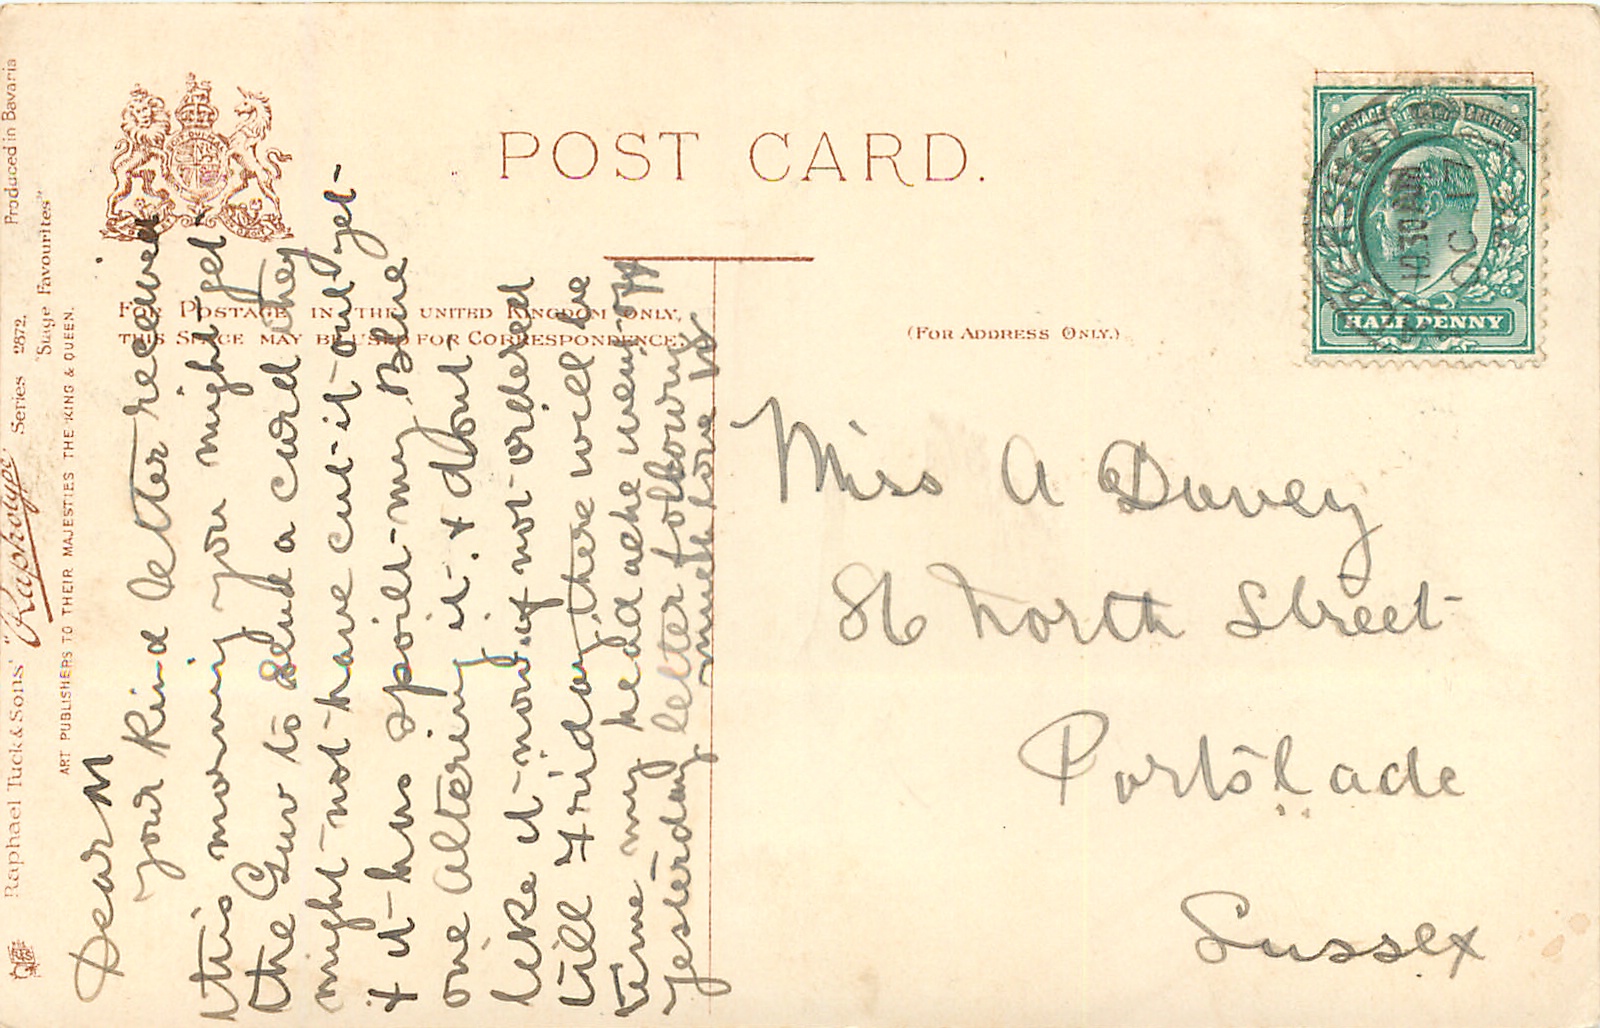 POST CARD.
FOR POSTAGE IN THE UNITED KINGDOM ONLY,
THIS SPACE MAY BE USED FOR CORRESPONDENCE.
(FOR ADDRESS ONLY.)
POSTAGE REVENUE
HALF PENNY
10 30 AM
OC 17
Miss A Davey
86 North Street
Portslade
Sussex
Dear M
your kind letter received
this morning you might get
the Guv to send a card they
might not have cut it out yet
& it has spoilt my Blue
one altering it. & dont
like it now. if not ordered
till Friday, there will be
time my head ache went off
yesterday letter following
much love
Raphael Tuck & Sons' "Raphotype" Series 2872. Produced in Bavaria
"Stage Favourites"
ART PUBLISHERS TO THEIR MAJESTIES THE KING & QUEEN.